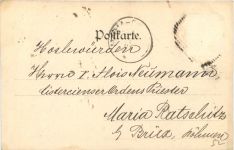 Postkarte.
Hochwürden
Herrn P. Alois Neumann
Cistercienser Ordens Priester
Maria Ratschitz
b/ Brüx, Böhmen